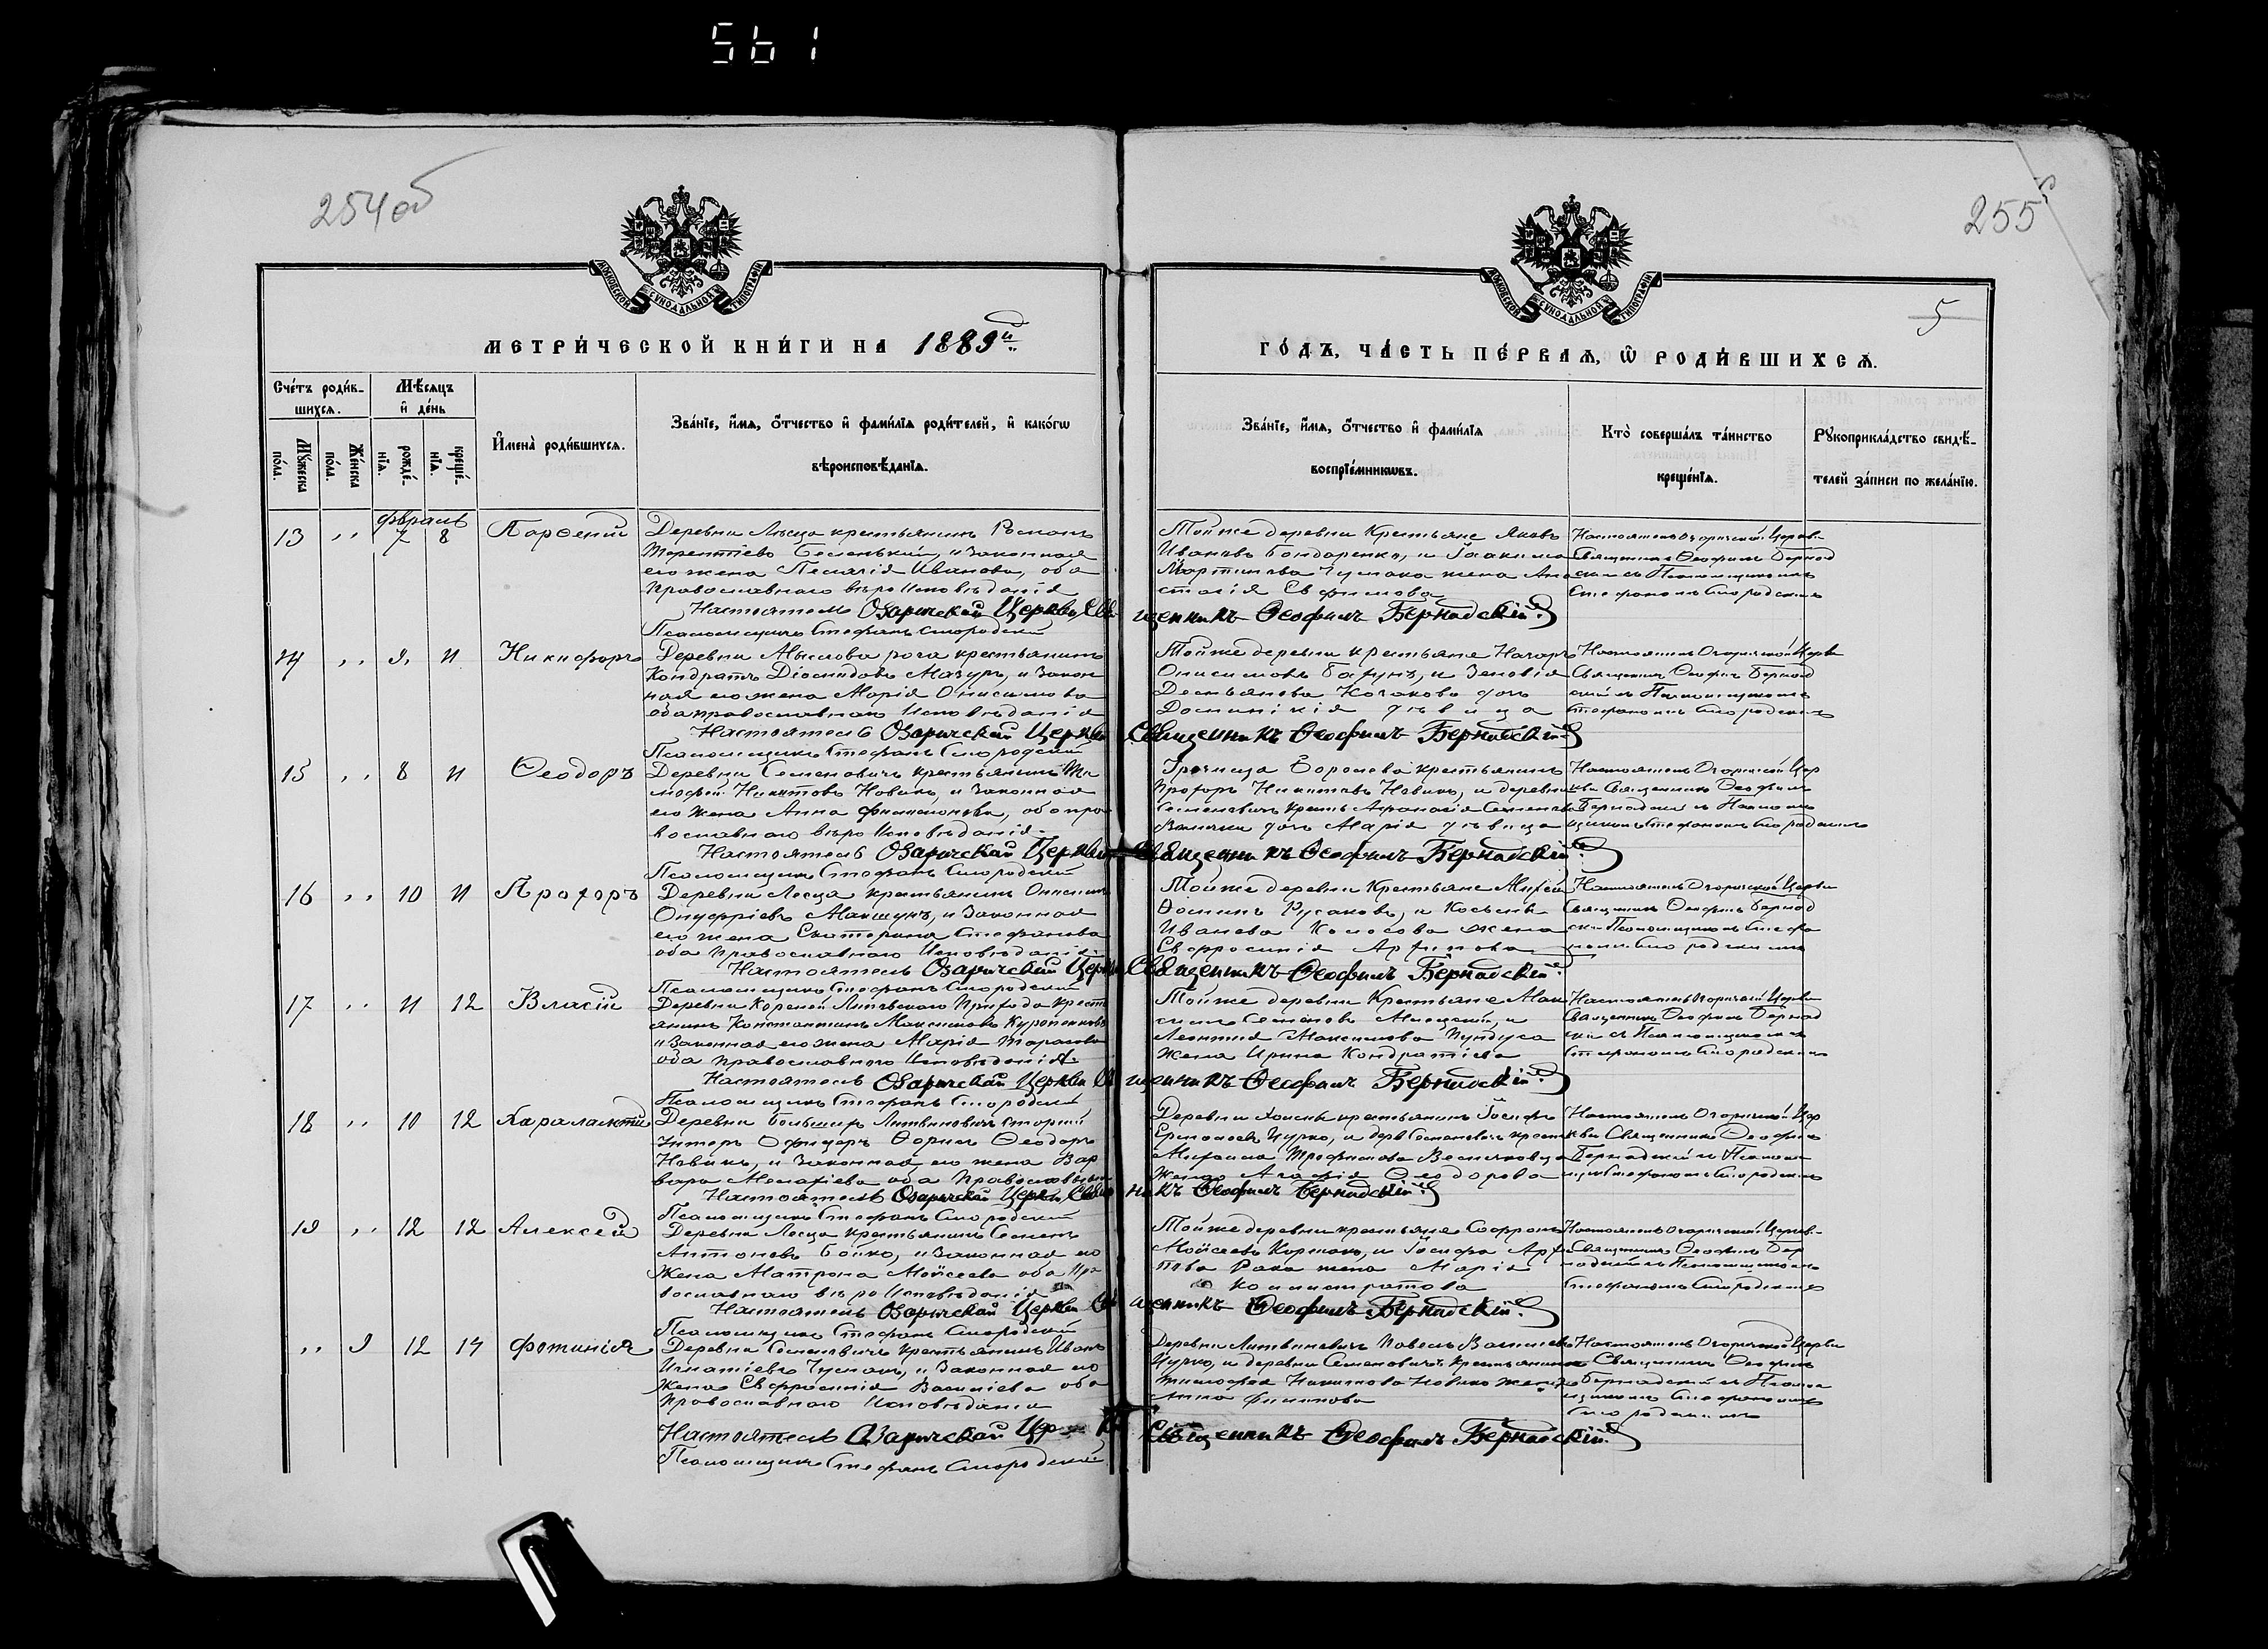 561
254об
255
5
МОСКОВСКОЙ СѴНОДАЛЬНОЙ ТИПОГРАФІИ
МОСКОВСКОЙ СѴНОДАЛЬНОЙ ТИПОГРАФІИ
МЕТРИ́ЧЕСКОЙ КНИ́ГИ НА 1889й
ГО́ДЪ, ЧА́СТЬ ПЕ́РВАѦ, Ѿ РОДИ́ВШИХСѦ.
Сче́тъ роди́в-
шихсѧ.
Мѣ́сѧцъ
и҆ де́нь
Мꙋ́жеска
по́ла.
Же́нска
по́ла.
рожде́-
нїѧ.
креще́-
нїѧ.
И҆мена̀ роди́вшихсѧ.
Зва́нїе, и҆́мѧ, ѻ҆́тчество и҆ фами́лїѧ роди́телей, и҆ како́гѡ
вѣроисповѣ́данїѧ.
Зва́нїе, и҆́мѧ, ѻ҆́тчество и҆ фами́лїѧ
воспрїе́мникѡвъ.
Кто̀ соверша́лъ та́инство
креще́нїѧ.
Рꙋкоприкла́дство свидѣ́-
телей за́писи по жела́нїю.
февраль
13 ,, 7 8 Парѳеній
Деревни Лѣсца крестьянинъ Романъ
Терентіевъ Беленькій, и законная
его жена Пелагія Иванова, оба
православнаго вѣроисповѣданія
Настоятель Озаричской Церкви Священникъ Ѳеофилъ Бернадскій
Псаломщикъ Стефанъ Смородскій
Той же деревни Крестьяне Яковъ
Ивановъ Бондаренко, и Іоакима
Мартинова Чумака жена Ана
стасія Евфимова
Настоятель Озаричской Церкви
Священникъ Ѳеофилъ Бернад
скій съ Псаломщикомъ
Стефаномъ Смородскимъ
14 ,, 9 11 Никифоръ
Деревни Мыслова рога крестьянинъ
Кондратъ Діомидовъ Мазуръ, и закон
ная его жена Марія Онисимова
оба православнаго исповѣданія
Настоятель Озаричской Церкви Священникъ Ѳеофилъ Бернадскій
Псаломщикъ Стефанъ Смородскій
Той же деревни крестьяне Назаръ
Онисимовъ и Зеновія
Демьянова дочь
Доминикія дѣвица
Настоятель Озаричской Церкви
Священникъ Ѳеофилъ Бернад
скій съ Псаломщикомъ
Стефаномъ Смородскимъ
15 ,, 8 11 Ѳеодоръ
Деревни Семеновичъ крестьянинъ Ти
мофей Никитовъ Новикъ, и законная
его жена Анна Филимонова, оба пра
вославнаго вѣроисповѣданія
Настоятель Озаричской Церкви Священникъ Ѳеофилъ Бернадскій
Псаломщикъ Стефанъ Смородскій
крестьянинъ
Прохоръ Никитовъ Новикъ, и деревни
Семеновичъ крест. Афанасія Семенова
дочь Марія дѣвица
Настоятель Озаричской Цер
кви Священникъ Ѳеофилъ
Бернадскій съ Псалом
щикомъ Стефаномъ Смородскимъ
16 ,, 10 11 Прохоръ
Деревни Лесца крестьянинъ Онисимъ
Онуфріевъ и законная
его жена Екатерина Стефанова
оба православнаго исповѣданія
Настоятель Озаричской Церкви Священникъ Ѳеофилъ Бернадскій
Псаломщикъ Стефанъ Смородскій
Той же деревни Крестьяне Михей
Ѳоминъ Русаковъ, и Косьмы
Иванова Колосова жена
Евфросинія Архипова
Настоятель Озаричской Церкви
Священникъ Ѳеофилъ Бернад
скій Псаломщикомъ Стефа
номъ Смородскимъ
17 ,, 11 12 Власій
Деревни Кореней прихода кресть
янинъ Константинъ Максимовъ
и законная его жена Марія Тарасова
оба православнаго исповѣданія
Настоятель Озаричской Церкви Священникъ Ѳеофилъ Бернадскій
Псаломщикъ Стефанъ Смородскій
Той же деревни Крестьяне Мак
симъ Семеновъ и
Леонтія Максимова
жена Ирина Кондратіева
Настоятель Озаричской Церкви
Священникъ Ѳеофилъ Бернад
скій съ Псаломщикомъ
Стефаномъ Смородскимъ
18 ,, 10 12 Харалампій
Деревни Большихъ Литвиновичъ старшій
Унтеръ Офицеръ Ѳеодоръ
Новикъ, и законная его жена Вар
вара оба Православныи
Настоятель Озаричской Церкви Священникъ Ѳеофилъ Бернадскій
Псаломщикъ Стефанъ Смородскій
Деревни крестьянинъ Іосифъ
Ермолаевъ Цурко, и дер. Семеновичъ крест
Михаила Трофимова
жена Агафія Ѳеодорова
Настоятель Озаричской Цер
кви Священникъ Ѳеофилъ
Бернадскій и Псалом
щикъ Стефаномъ Смородскимъ
19 ,, 12 12 Алексей
Деревни Лесца крестьянинъ Семенъ
Антоновъ Бойко, и законная его
жена Матрона Мойсеева оба пра
вославнаго вѣроисповѣданія
Настоятель Озаричской Церкви Священникъ Ѳеофилъ Бернадскій
Псаломщикъ Стефанъ Смородскій
Той же деревни крестьяне Софронъ
Мойсеевъ и Іосифа Архи
пова жена Марія
Настоятель Озаричской Церкви
Священникъ Ѳеофилъ Бер
надскій съ Псаломщикомъ
Стефаномъ Смородскимъ
,, 9 12 14 Фотинія
Деревни Семеновичъ крестьянинъ Иванъ
Игнатіевъ Чумакъ, и законная его
жена Евфросинія Василіева оба
Православнаго исповѣданія
Настоятель Озаричской Церкви Священникъ Ѳеофилъ Бернадскій
Псаломщикъ Стефанъ Смородскій
Деревни Литвиновичъ Павелъ Василіевъ
Цурко, и деревни Семеновичъ крестьянина
Тимофея Никитова Новика жена
Анна
Настоятель Озаричской Церкви
Священникъ Ѳеофилъ
Бернадскій съ Псалом
щикомъ Стефаномъ
Смородскимъ